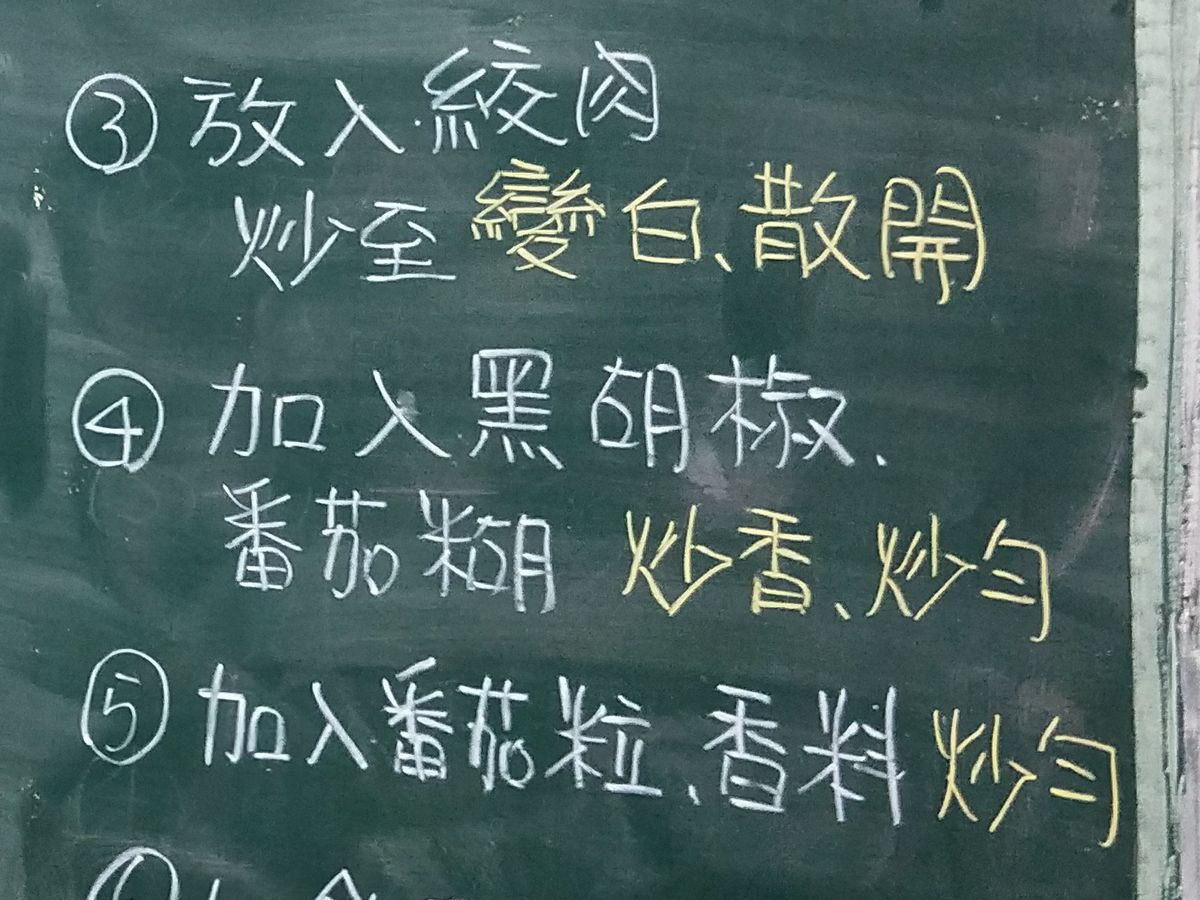 ③放入絞肉
炒至變白、散開
④加入黑胡椒、
番茄糊 炒香、炒勻
⑤加入番茄粒、香料 炒勻